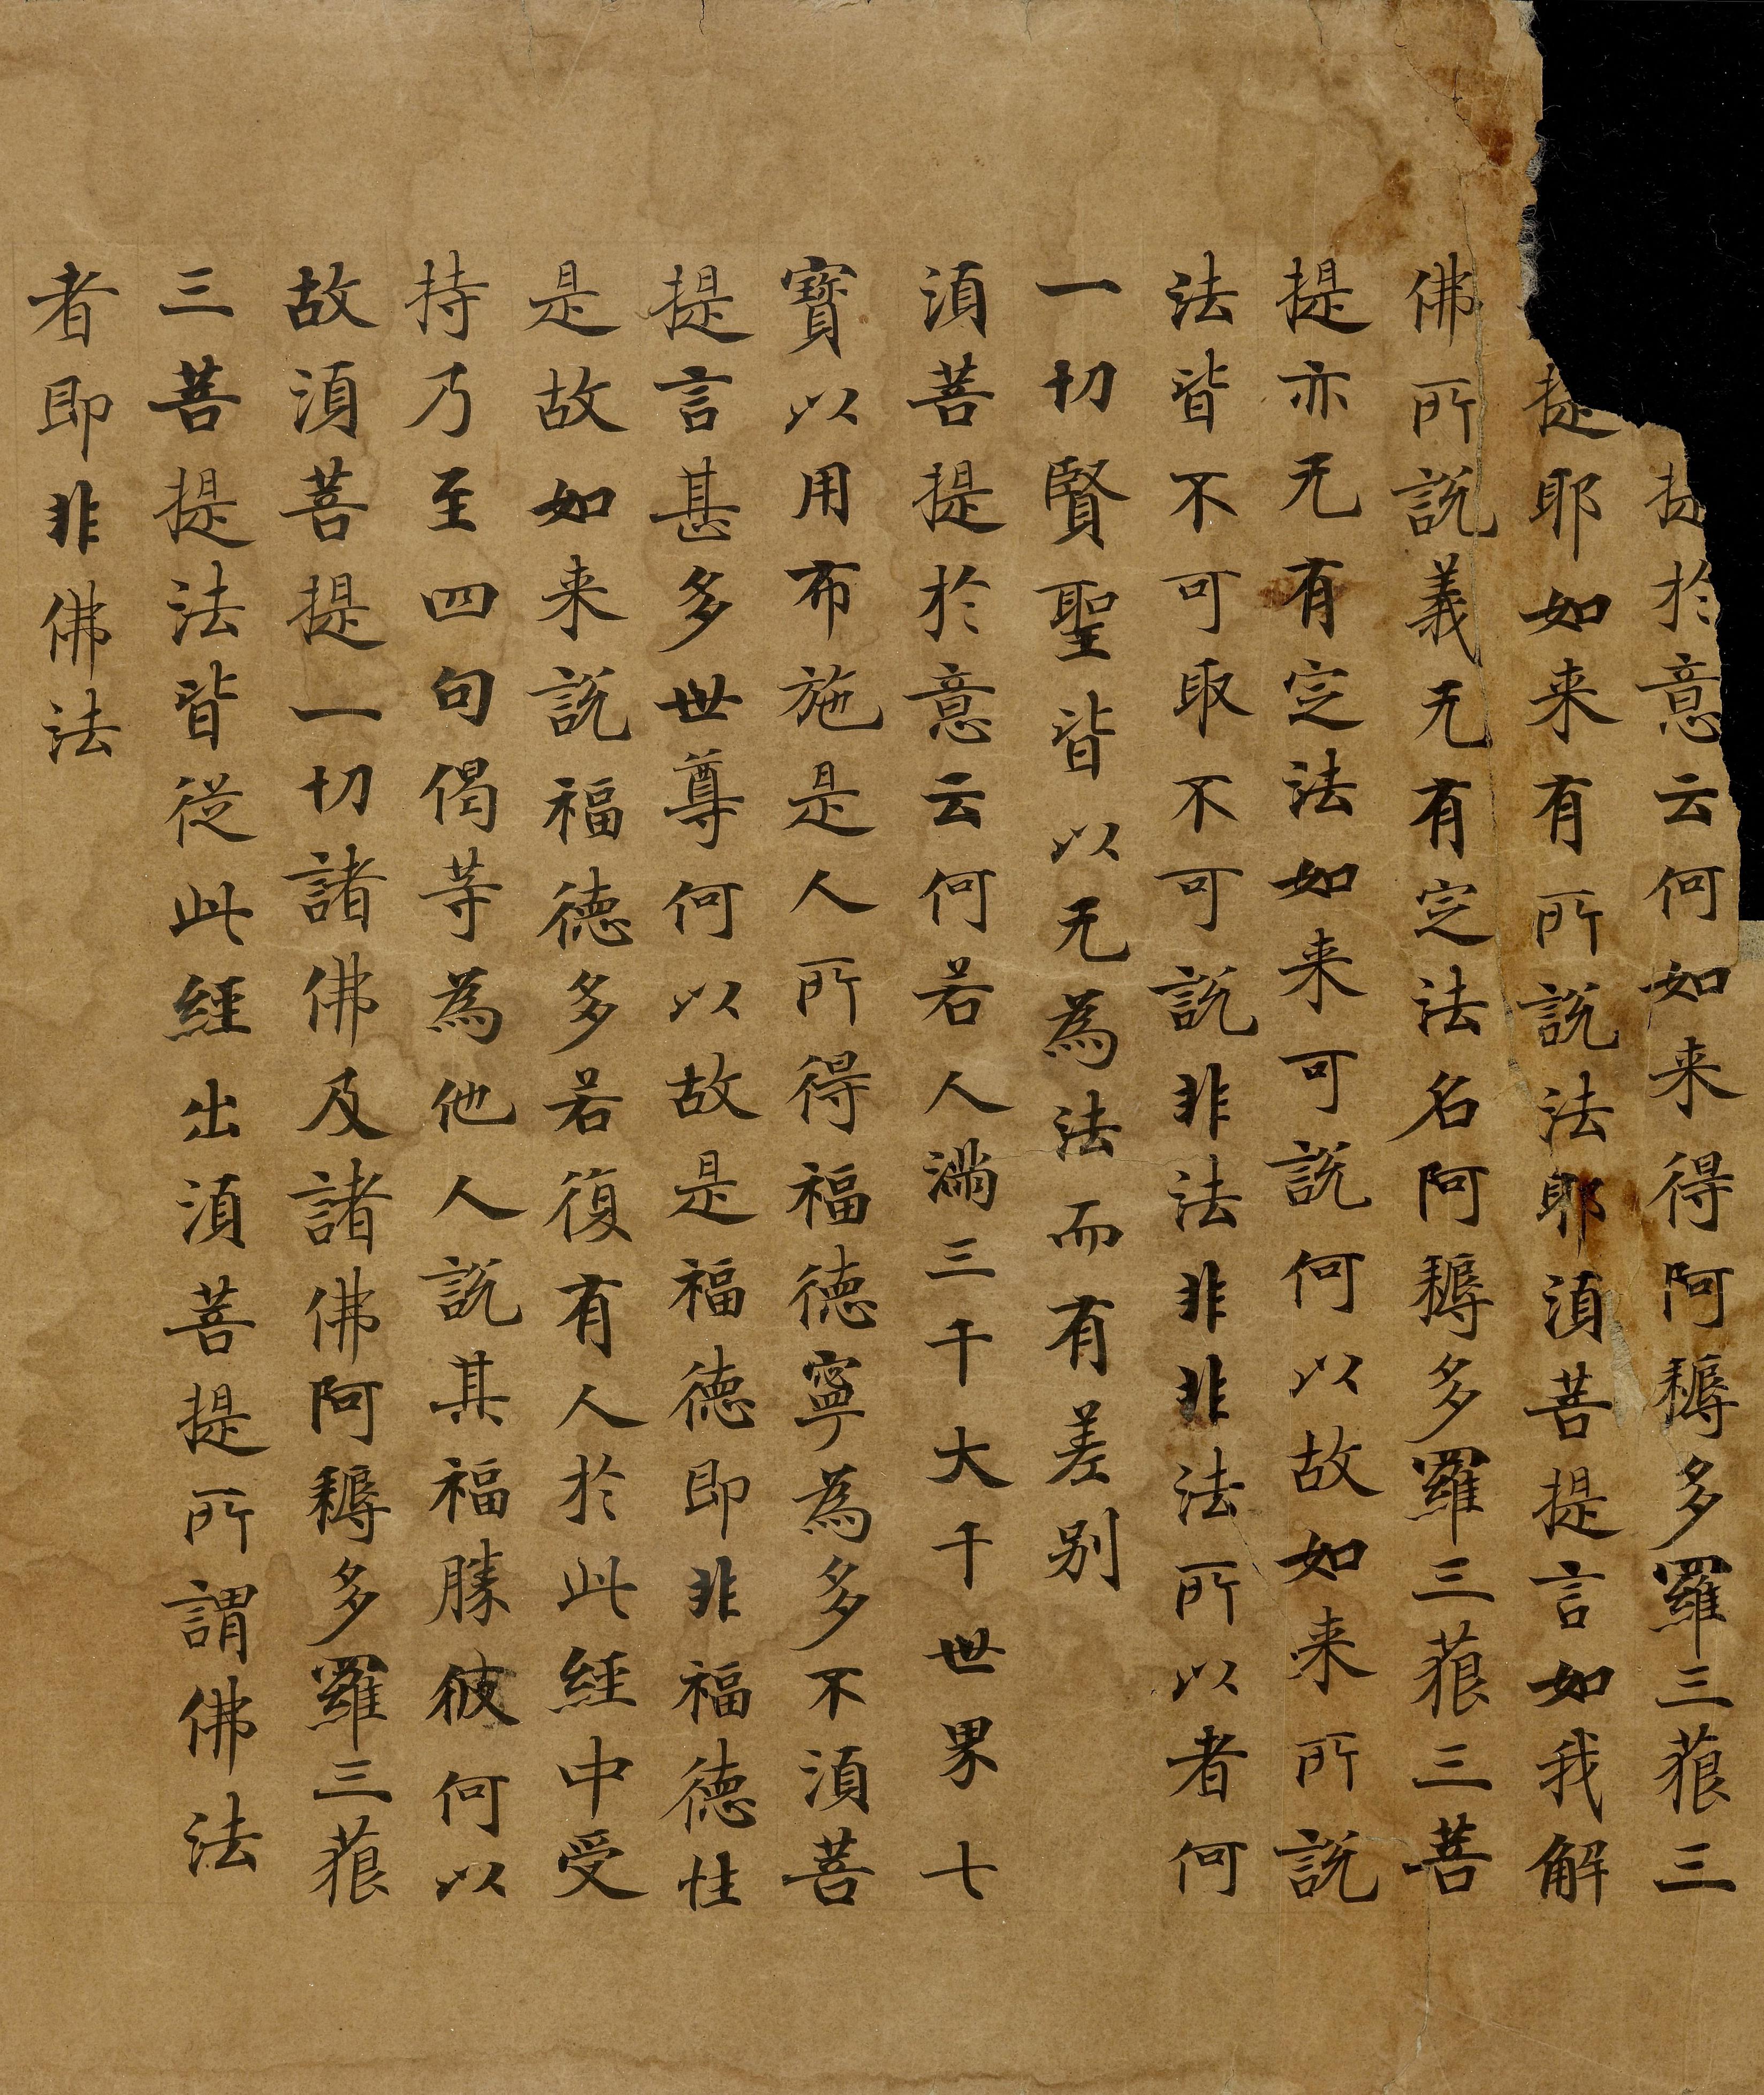 提於意云何如来得阿耨多羅三藐三
提耶如来有所說法耶湏菩提言如我解
佛所說義无有定法名阿耨多羅三藐三菩
提亦无有定法如来可說何以故如来所說
法皆不可取不可說非法非非法所以者何
一切賢聖皆以无為法而有差别
湏菩提於意云何若人滿三千大千世界七
寳以用布施是人所得福德寧為多不湏菩
提言甚多世尊何以故是福德即非福德性
是故如来說福德多若復有人於此經中受
持乃至四句偈等為他人說其福勝彼何以
故湏菩提一切諸佛及諸佛阿耨多羅三藐
三菩提法皆從此經出湏菩提所謂佛法
者即非佛法